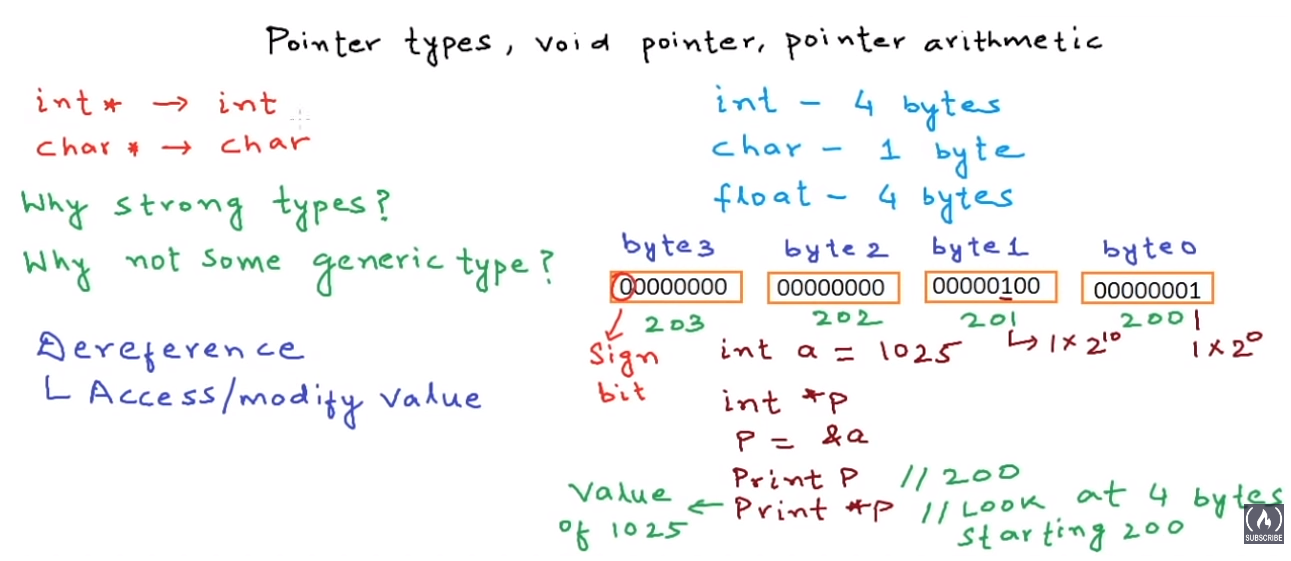 Pointer types, void pointer, pointer arithmetic
int * → int
char * → char
Why strong types?
Why not some generic type?
Dereference
└ Access/modify value
int - 4 bytes
char - 1 byte
float - 4 bytes
byte3 byte2 byte1 byte0
00000000 00000000 00000100 00000001
203 202 201 200
Sign bit
int a = 1025 ↳ 1 x 2^10 1 x 2^0
int *p
P = &a
Print P // 200
Value of 1025 ← Print *p // Look at 4 bytes
starting 200
SUBSCRIBE